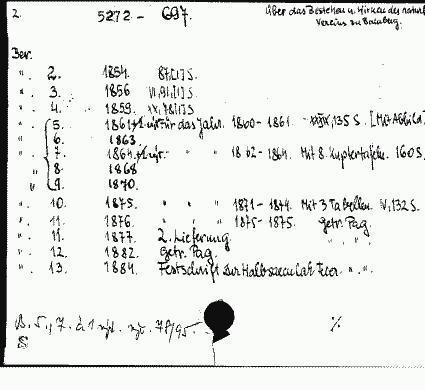 2. 5272 - 697. Über das Bestehen u. Wirken des naturf.
Vereins zu Bamberg.
Ber.
". 2. 1854. 87,[1] S.
". 3. 1856 VI,91,[1] S.
". 4. 1859. XX,78[1] S.
" 5. 1861 für das Jahr. 1860-1861. 135 S. [Mit Abbild.]
" 6. 1863.
" 7. 1864. " " 1862-1864. Mit 8 Kupfertafeln. 160 S.
" 8. 1868
" 9. 1870.
". 10. 1875. " " " 1871-1874. Mit 3 Tabellen. V,132 S.
". 11. 1876. " " " 1875-1875. getr. Pag.
". 11. 1877. 2. Lieferung " "
". 12. 1882. getr. Pag.
". 13. 1884. Festschrift zur Halbsaecular Feier. ". ".
B. 5., 7. à 1 78/95. %
S